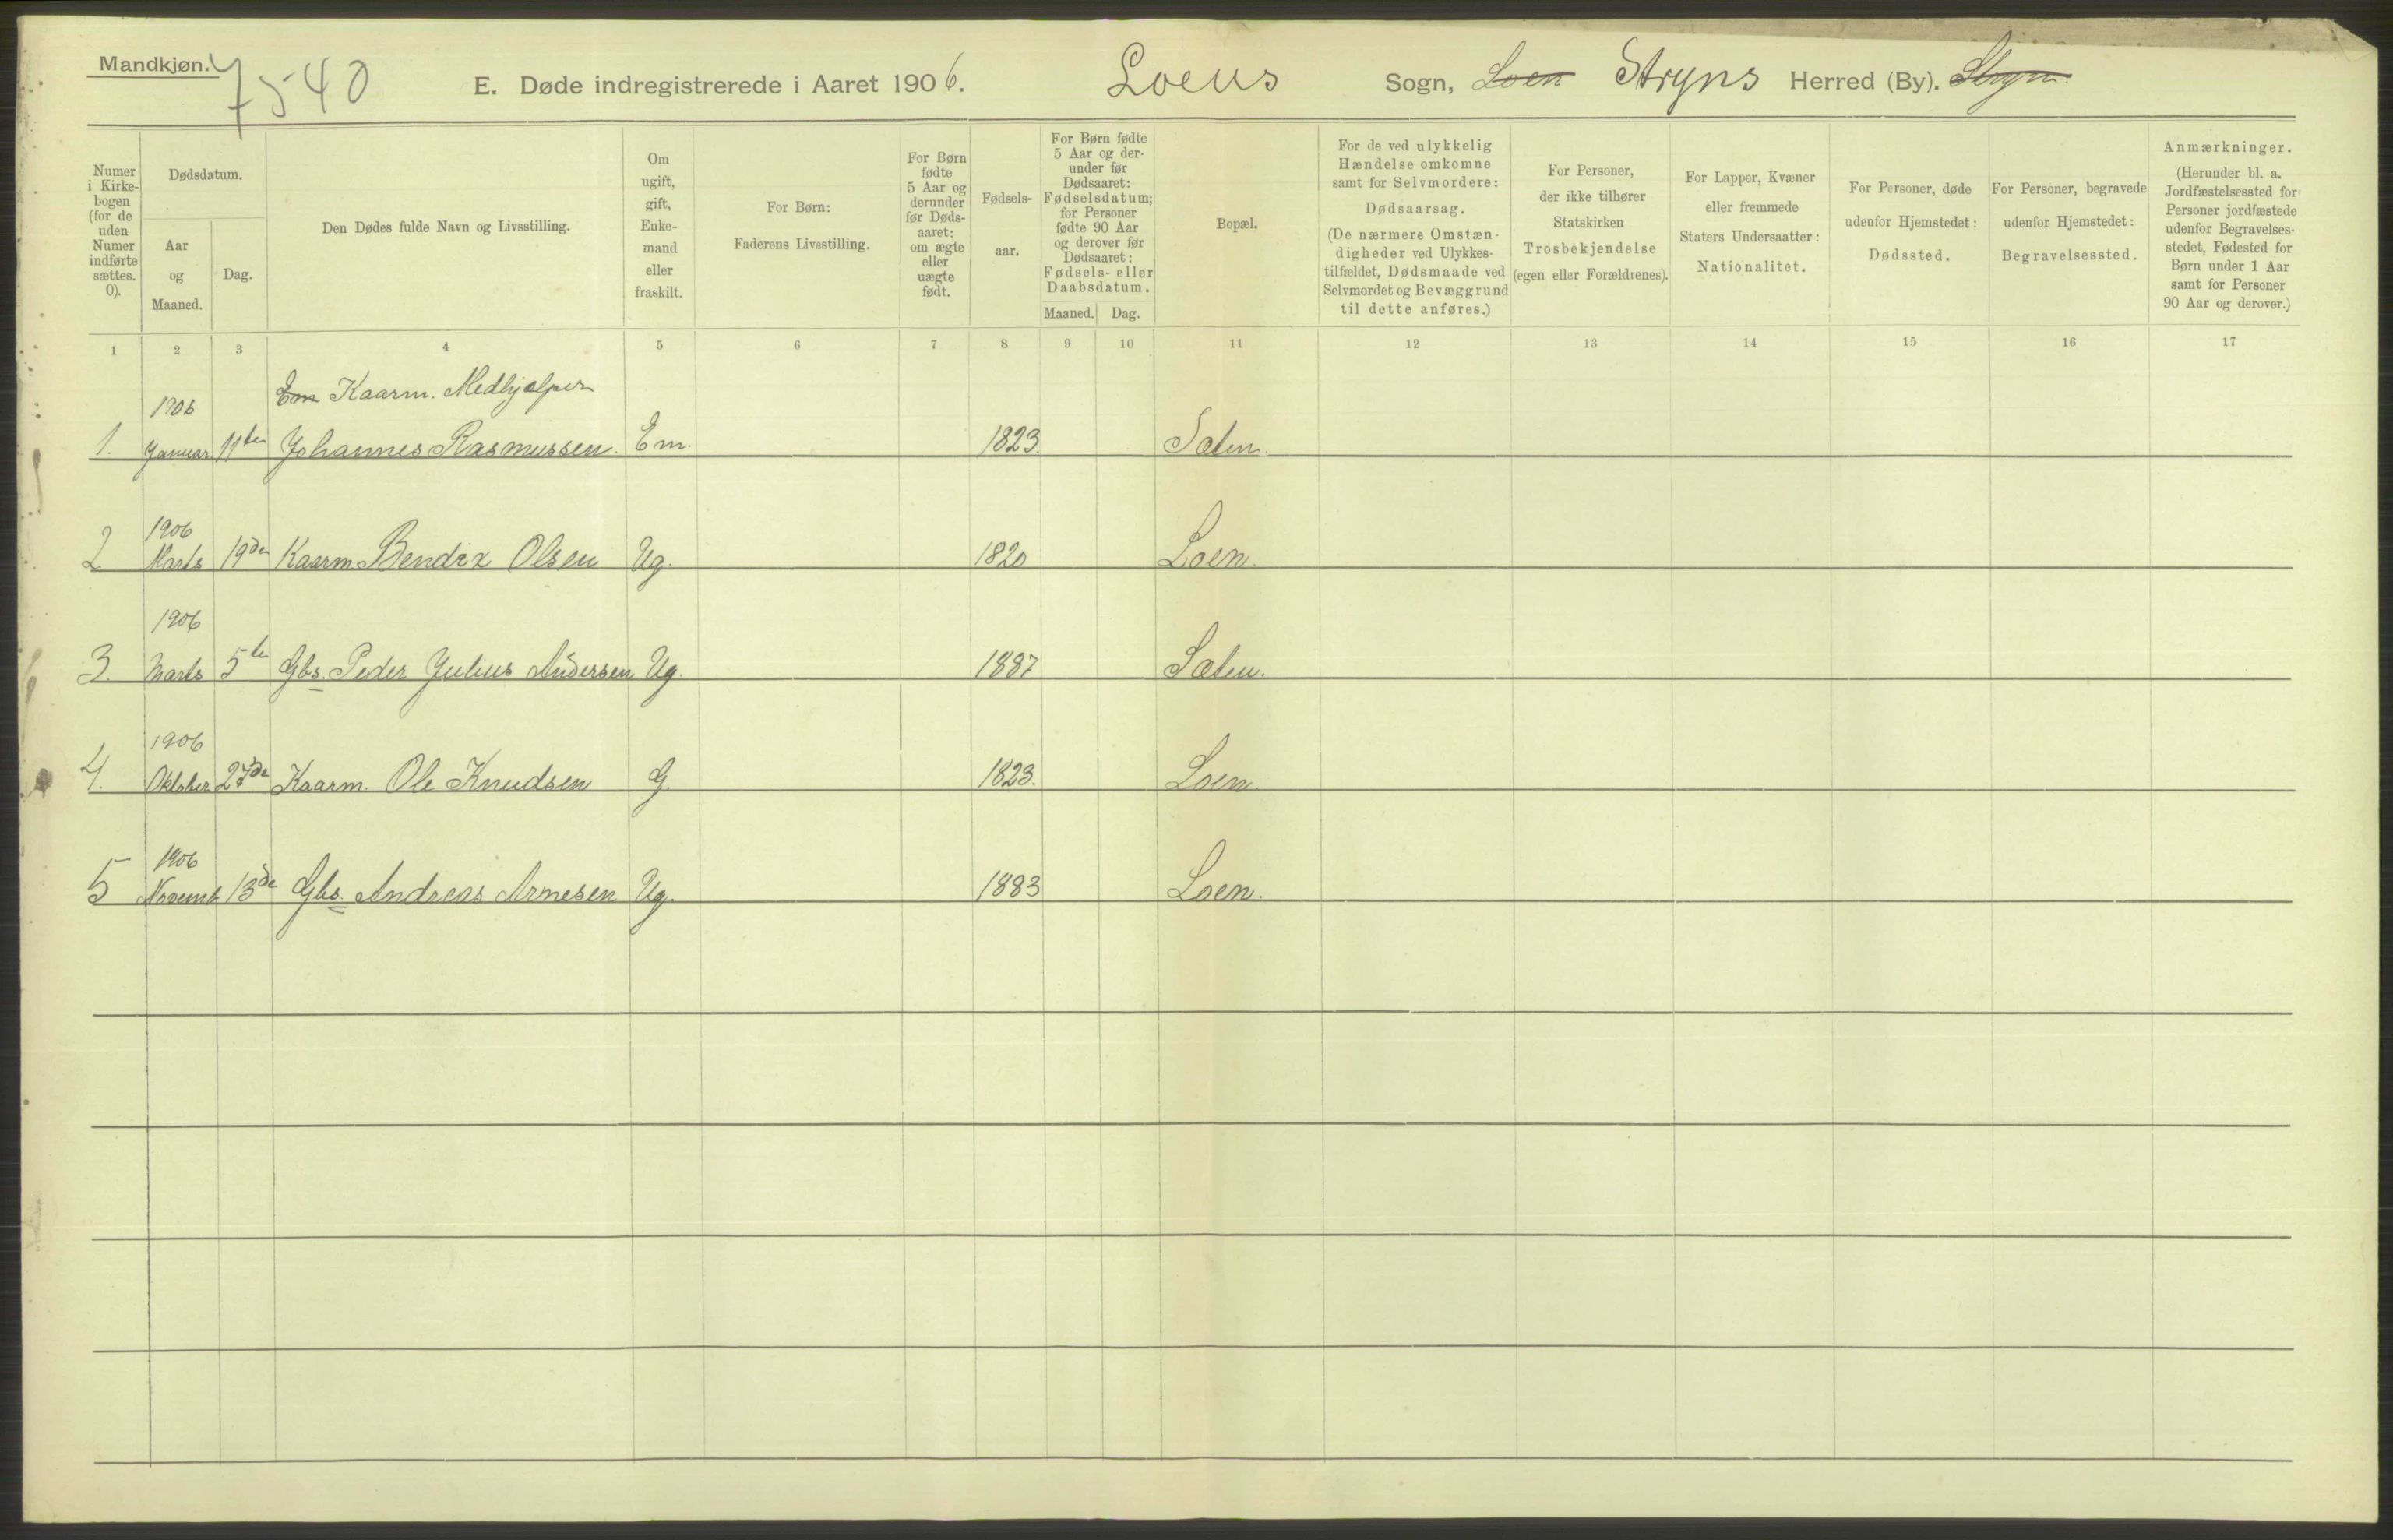 Mandkjøn.
7540
E. Døde indregistrerede i Aaret 1906. Loens Sogn, Loen Stryns Herred (By). Stryn.
Numer i Kirke-bogen (for de uden Numer indførte sættes. 0).
Dødsdatum.
Aar og Maaned.
Dag.
Den Dødes fulde Navn og Livsstilling.
Om ugift, gift, Enke-mand eller fraskilt.
For Børn: Faderens Livsstilling.
For Børn fødte 5 Aar og derunder før Døds-aaret: om ægte eller uægte født.
Fødsels-aar.
For Børn fødte 5 Aar og der-under før Dødsaaret: Fødselsdatum; for Personer fødte 90 Aar og derover før Dødsaaret: Fødsels- eller Daabsdatum.
Maaned. Dag.
Bopæl.
For de ved ulykkelig Hændelse omkomne samt for Selvmordere: Dødsaarsag. (De nærmere Omstæn-digheder ved Ulykkes-tilfældet, Dødsmaade ved Selvmordet og Bevæggrund til dette anføres.)
For Personer, der ikke tilhører Statskirken Trosbekjendelse (egen eller Forældrenes).
For Lapper, Kvæner eller fremmede Staters Undersaatter: Nationalitet.
For Personer, døde udenfor Hjemstedet: Dødssted.
For Personer, begravede udenfor Hjemstedet: Begravelsessted.
Anmærkninger. (Herunder bl. a. Jordfæstelsessted for Personer jordfæstede udenfor Begravelses-stedet, Fødested for Børn under 1 Aar samt for Personer 90 Aar og derover.)
1 2 3 4 5 6 7 8 9 10 11 12 13 14 15 16 17
1906 Em Kaarm. Medhjælper
1. Januar 11te Johannes Rasmussen. Em. 1823. Sæten.
1906
2 Marts 19de Kaarm. Bendix Olsen Ug. 1820 Loen.
1906
3. Marts 5te Gbs. Peder Julius Andersen Ug. 1887 Sæten.
1906
4. Oktober 27de Kaarm. Ole Knudsen G. 1823. Loen.
1906
5 Novemb 13de Gbs. Andreas Arnesen Ug. 1883 Loen.